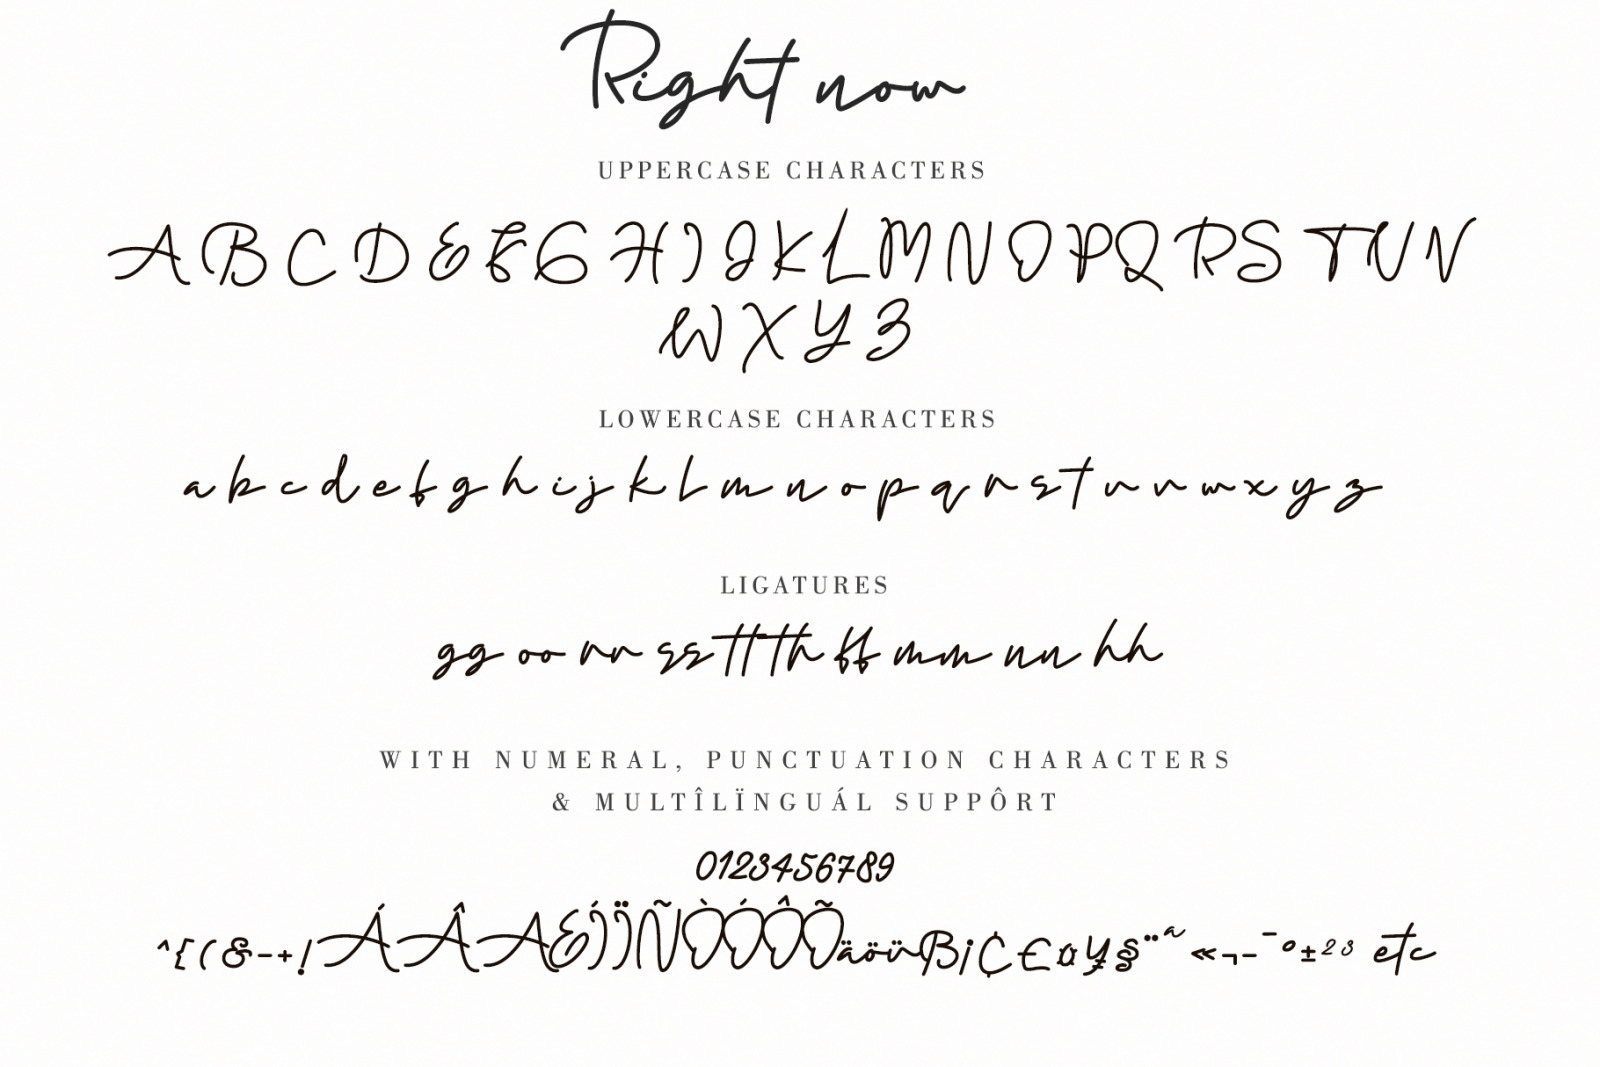 Right now
UPPERCASE CHARACTERS
A B C D E F G H I J K L M N O P Q R S T U V
W X Y Z
LOWERCASE CHARACTERS
a b c d e f g h i j k l m n o p q r s t u v w x y z
LIGATURES
gg oo rr ss tt th ff mm nn hh
WITH NUMERAL, PUNCTUATION CHARACTERS
& MULTÎLÏNGUÁL SUPPÔRT
0123456789
^{(&-+!ÁÂAÉÍÏÑÒÓÔÕäöüß¡₵£¤¥§¨ª«¬-¯º±²³ etc